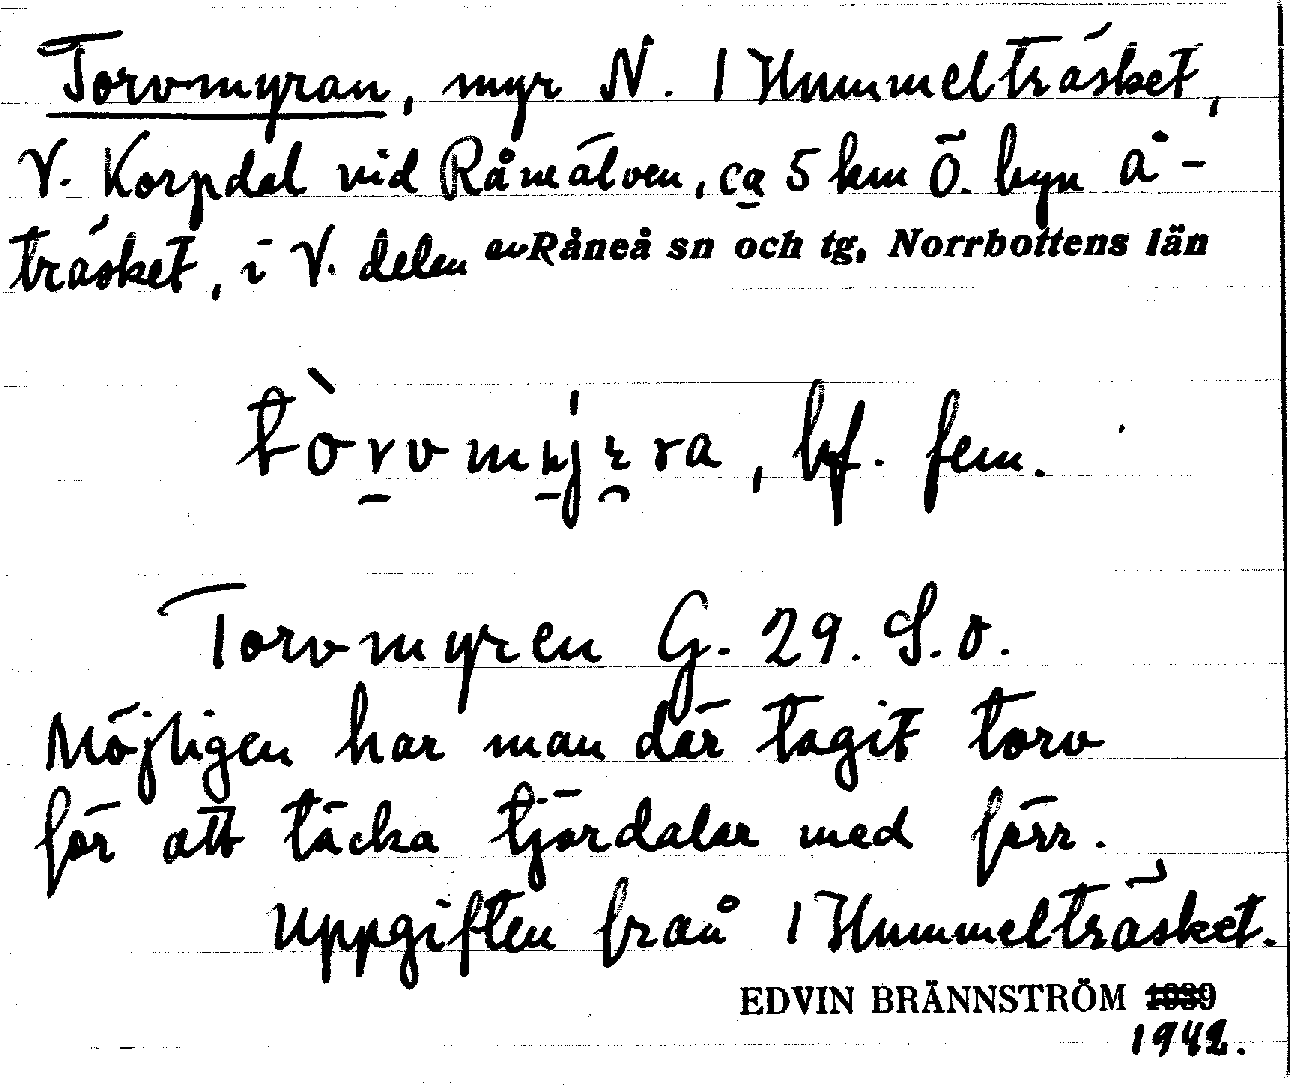 Torvmyran, myr N. 1 Hummelträsket,
V. Korpdal vid Råneälven, ca 5 km Ö. byn Å-
träsket, i V. delen av Råneå sn och tg, Norrbottens län
bf. fem.
Torvmyren G. 29. S.O.
Möjligen har man där tagit torv
för att täcka tjärdalar med förr.
Uppgiften från 1 Hummelträsket.
EDVIN BRÄNNSTRÖM 1939
1942.